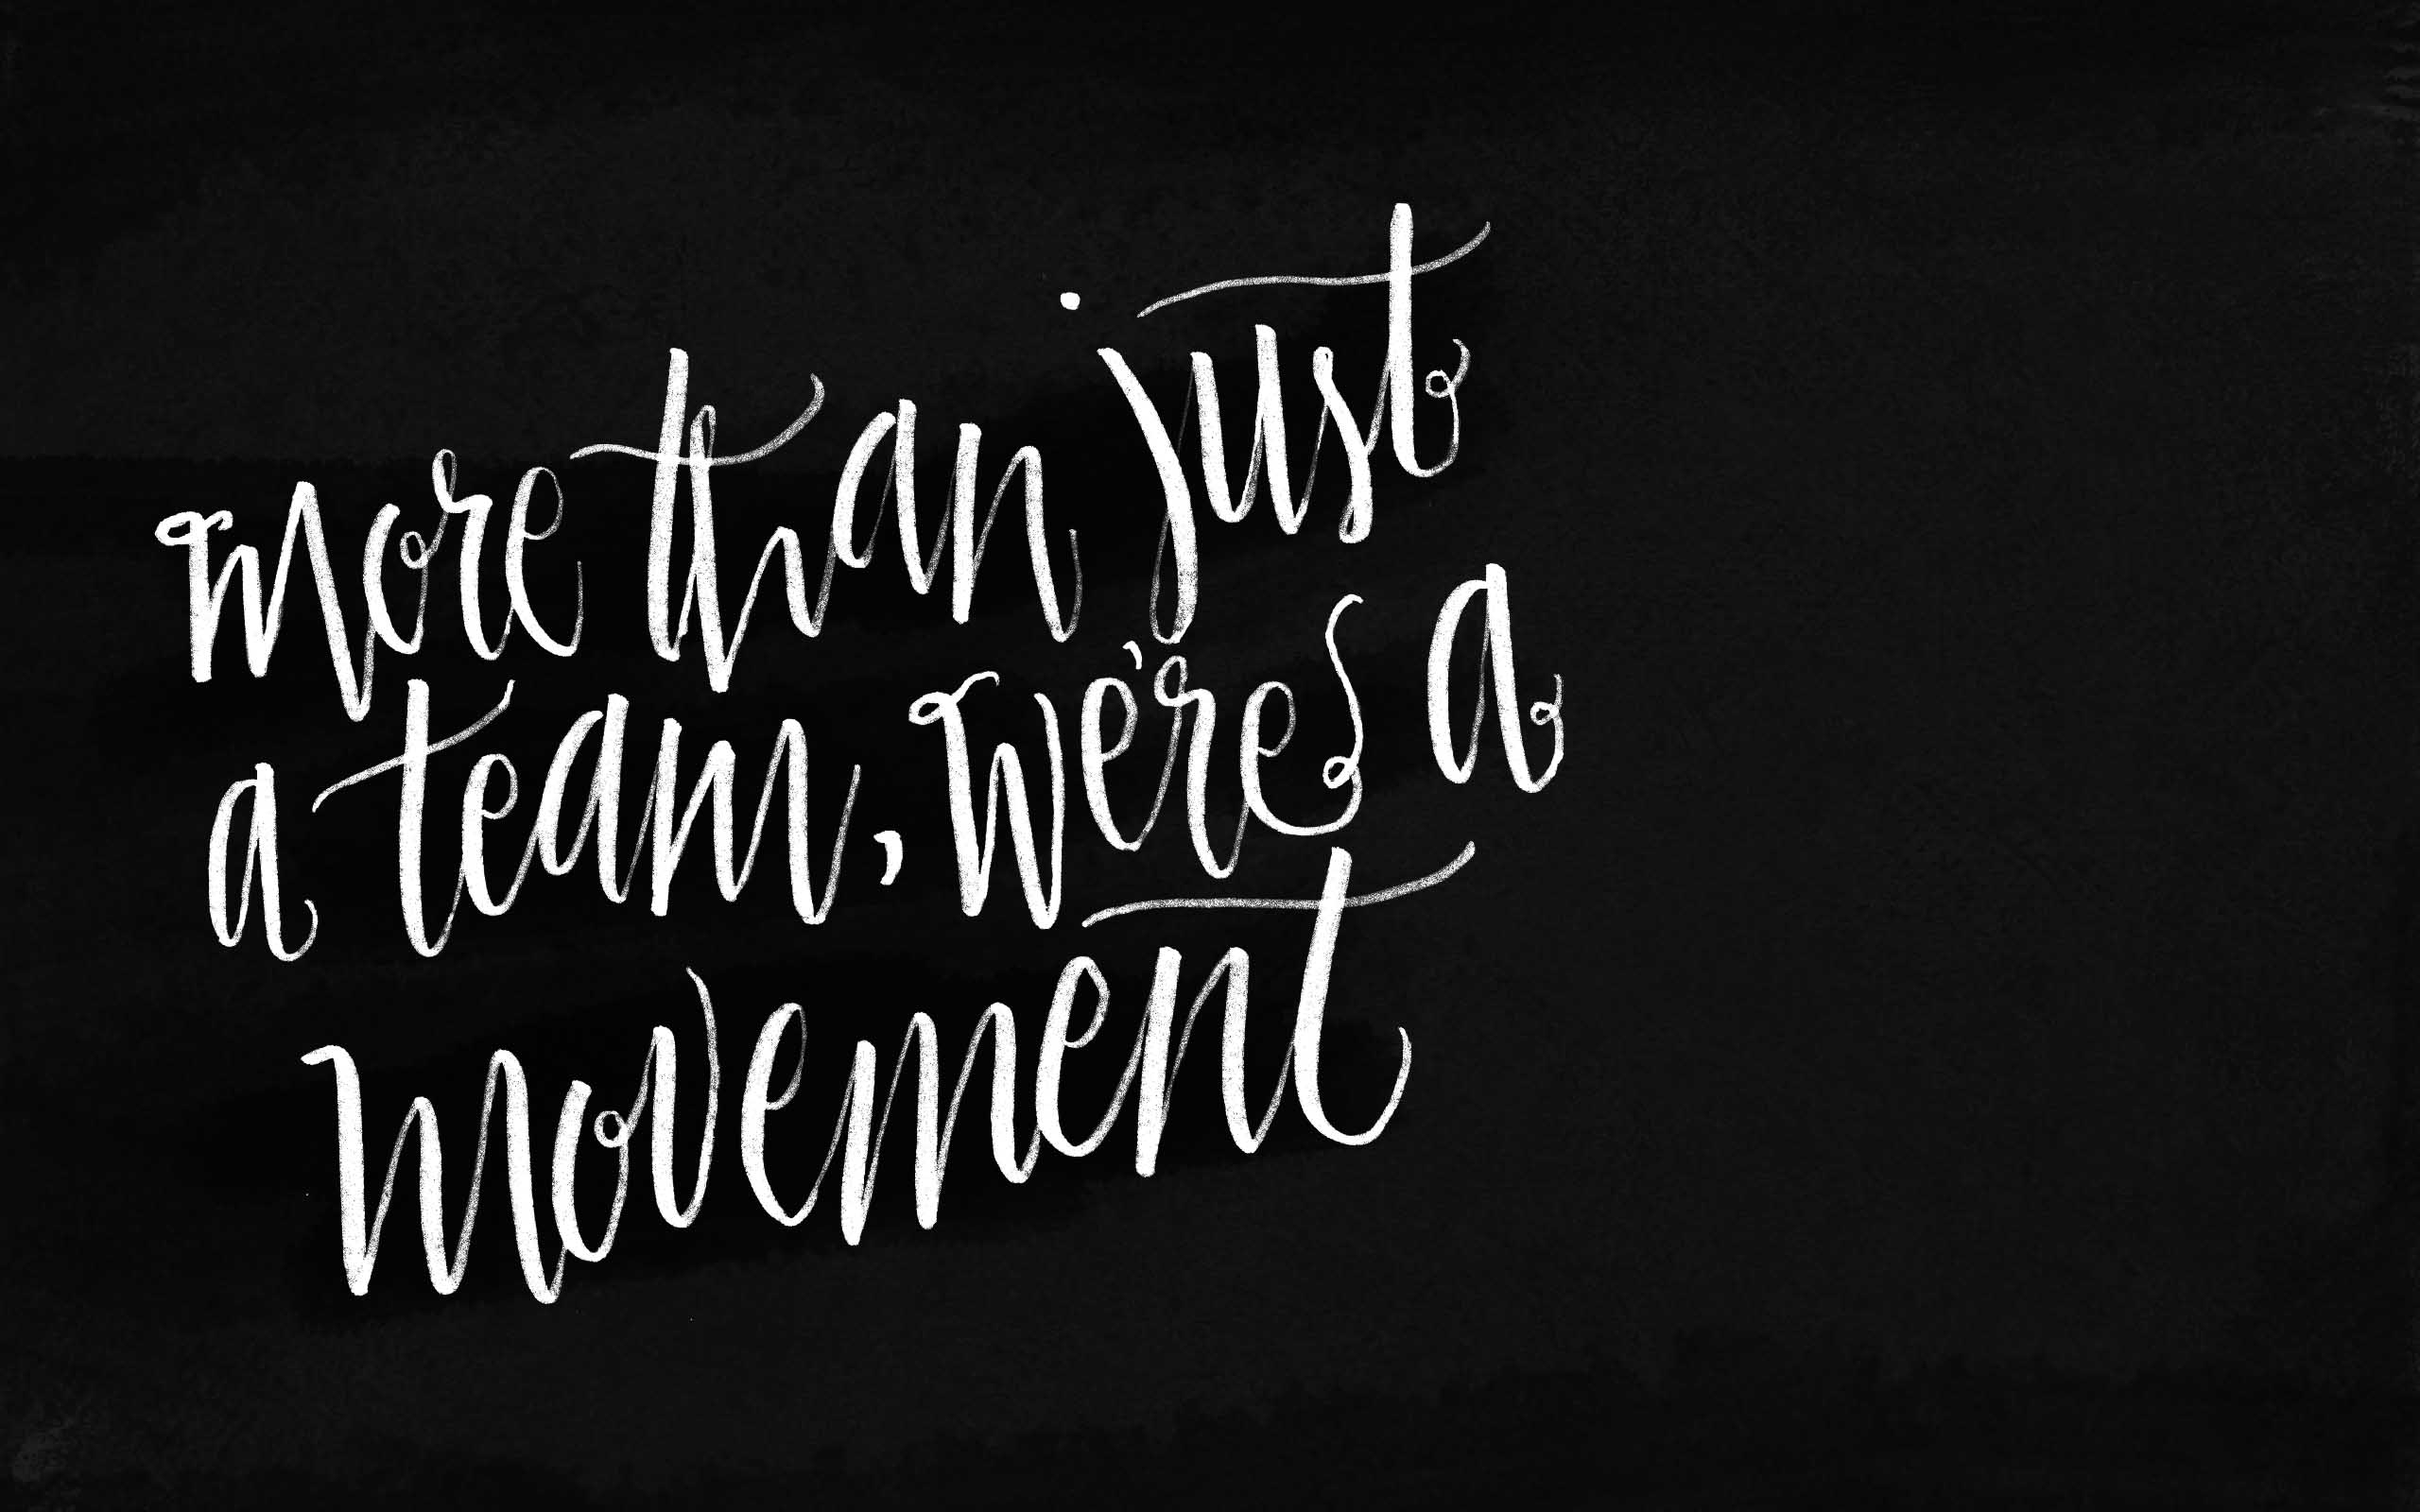 more than just
a team, we're a
movement